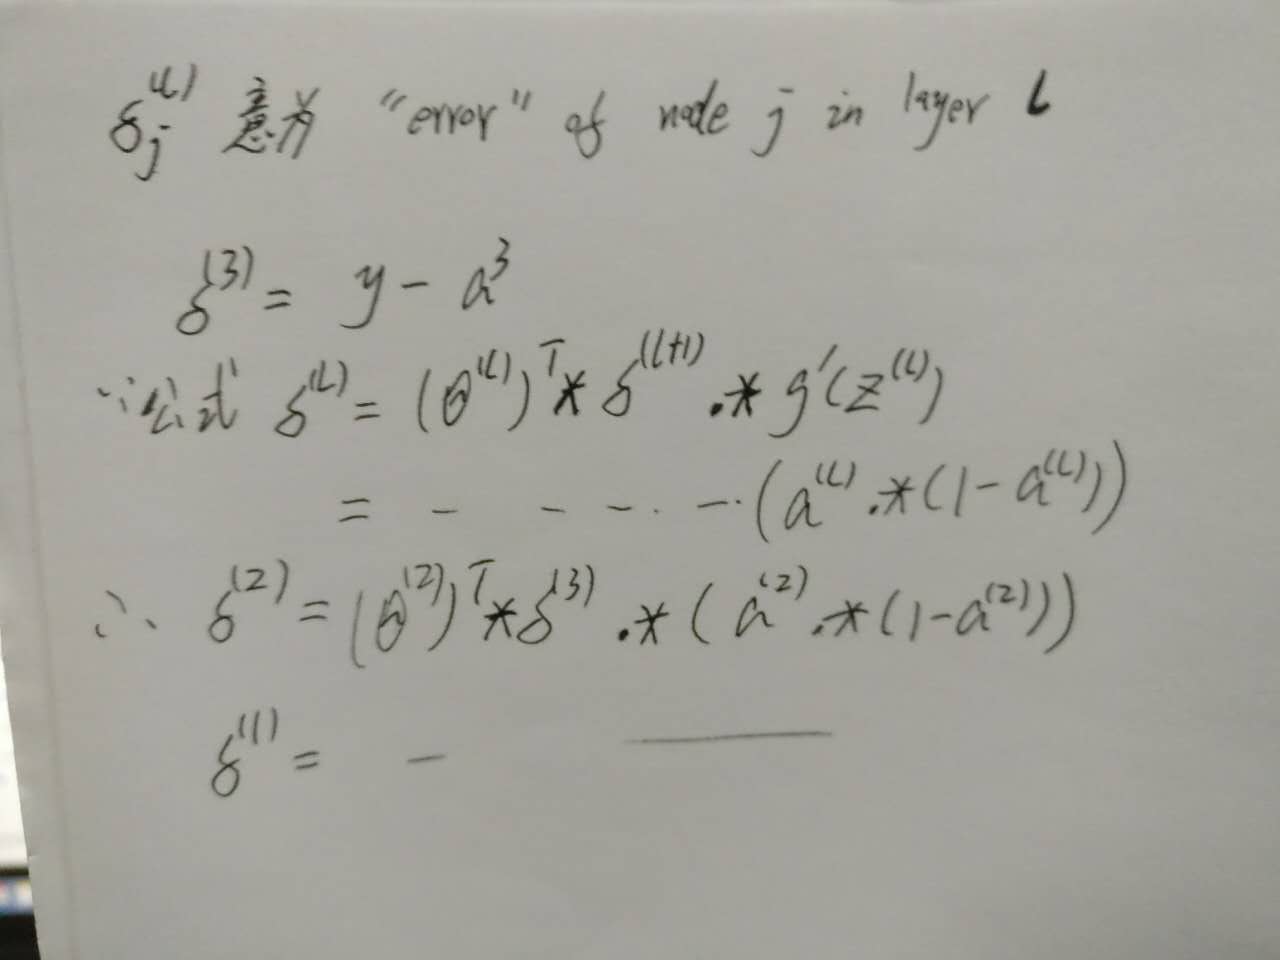 δj^(L) 意为 "error" of node j in layer L
δ^(3) = y - a^3
∵公式 δ^(L) = (θ^(L))^T * δ^(L+1) .* g'(z^(L))
= - - - . - . (a^(L) .* (1 - a^(L)))
∴ δ^(2) = (θ^(2))^T * δ^(3) .* (a^(2) .* (1 - a^(2)))
δ^(1) = - —